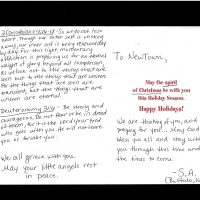 2 Corinthians 4:16-18 - So we do not lose
heart. Though our outer self is wasting
away, our inner self is being renewed day
by day. For this light momentary
affliction is preparing us for an eternal
weight of glory beyond all comparison,
as we look not to the things that are
seen but to the things that are unseen.
For the things that are seen are
transient, but the things that are
unseen are eternal.
Deuteronomy 31:6 - Be strong and
courageous. Do not fear or be in dread
of them, for it is the Lord your God
who goes with you. He will not leave
you or forsake you.
We all grieve with you.
May your little angels rest
in peace.
To Newtown,
May the spirit
of Christmas be with you
this Holiday Season.
Happy Holidays!
We are thinking of you, and
praying for you... May God
bless you all and stay with
you through this time and
the times to come.
- S.A.